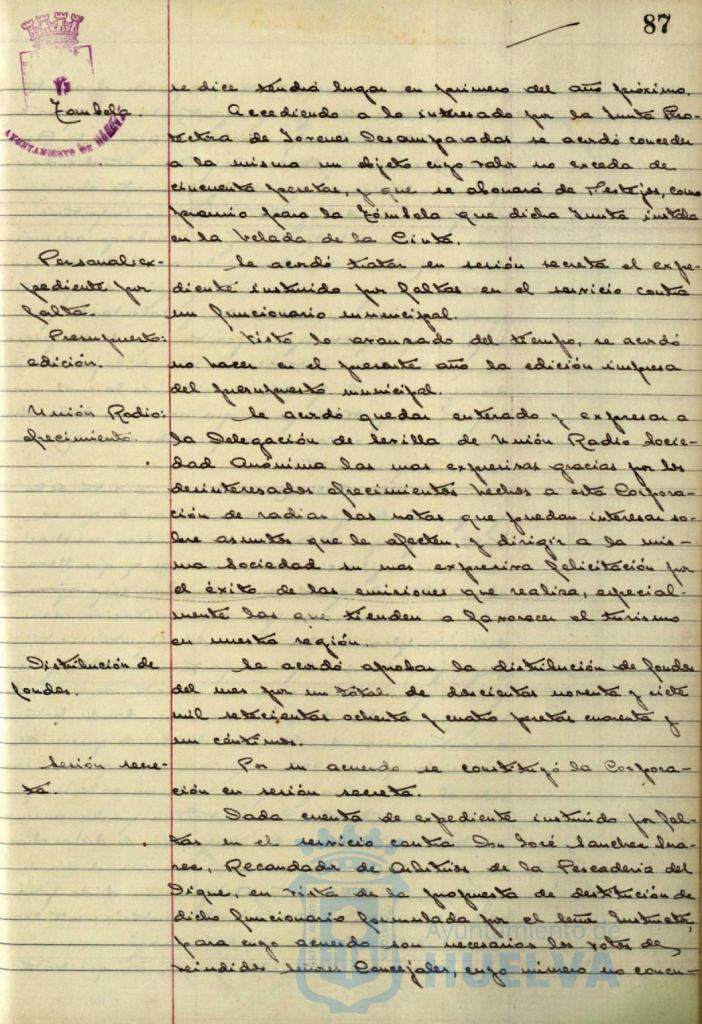 87
se dice tendrá lugar en primero del año próximo.
Tómbola.
AYUNTAMIENTO DE HUELVA
Accediendo a lo interesado por la Junta Pro-
tectora de Jovenes Desamparadas se acordó conceder
a la misma un objeto cuyo valor no exceda de
cincuenta pesetas, y que se abonará de Festejos, como
premio para la Tómbola que dicha Junta instala
en la Velada de la Cinta.
Personal: ex-
pediente por
falta.
Se acordó tratar en sesión secreta el expe-
diente instruido por faltas en el servicio contra
un funcionario municipal.
Presupuesto:
edición.
Visto lo avanzado del tiempo, se acordó
no hacer en el presente año la edición impresa
del presupuesto municipal.
Unión Radio:
ofrecimiento.
Se acordó quedar enterado y expresar a
la Delegación de Sevilla de Unión Radio Socie-
dad Anónima las mas expresivas gracias por los
desinteresados ofrecimientos hechos a esta Corpora-
ción de radiar las notas que puedan interesar so-
bre asuntos que le afecten, y dirigir a la mis-
ma Sociedad su mas expresiva felicitación por
el éxito de las emisiones que realiza, especial-
mente las que tienden a favorecer el turismo
en nuestra región.
Distribución de
fondos.
Se acordó aprobar la distribución de fondos
del mes por un total de doscientas noventa y siete
mil setecientas ochenta y cuatro pesetas cuarenta y
un céntimos.
Sesión secre-
ta.
Por su acuerdo se constituyó la Corpora-
ción en sesión secreta.
Dada cuenta de expediente instruido por fal-
tas en el servicio contra Don José Sanchez Sua-
rez, Recaudador de Arbitrios de la Pescaderia del
Dique, en vista de la propuesta de destitución de
dicho funcionario formulada por el Señor Instructor,
para cuyo acuerdo son necesarios los votos de
veintidos señores Concejales, cuyo número no concu-
Ayuntamiento de
HUELVA